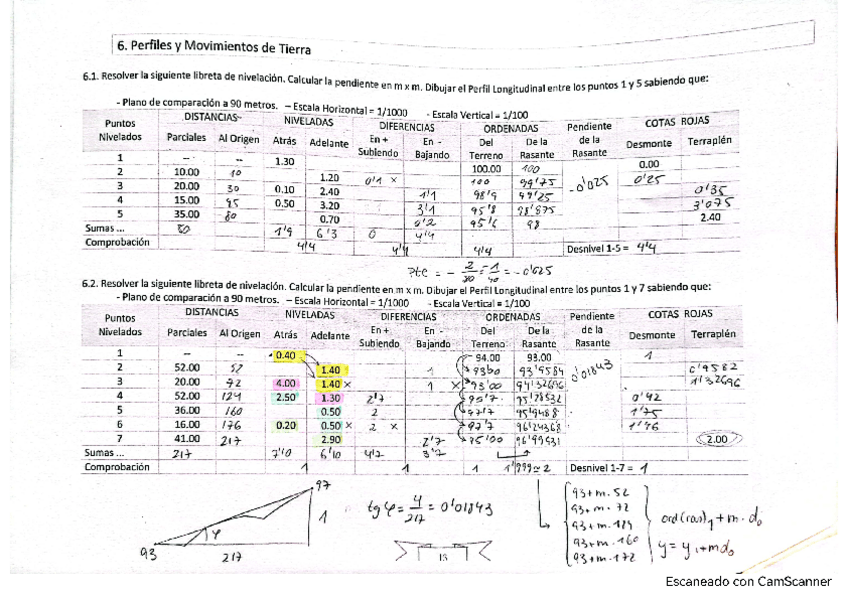 6. Perfiles y Movimientos de Tierra
6.1. Resolver la siguiente libreta de nivelación. Calcular la pendiente en m x m. Dibujar el Perfil Longitudinal entre los puntos 1 y 5 sabiendo que:
- Plano de comparación a 90 metros. – Escala Horizontal = 1/1000 - Escala Vertical = 1/100
Puntos Nivelados DISTANCIAS NIVELADAS DIFERENCIAS ORDENADAS Pendiente de la Rasante COTAS ROJAS
Parciales Al Origen Atrás Adelante En + Subiendo En - Bajando Del Terreno De la Rasante Desmonte Terraplén
1 -- -- 1.30 100.00 100 0.00
2 10.00 10 1.20 0'1 x 100 99'75 -0'025 0'25
3 20.00 30 0.10 2.40 1'1 98'9 99'25 0'35
4 15.00 45 0.50 3.20 3'1 95'8 98'875 3'075
5 35.00 80 0.70 0'2 95'6 98 2.40
Sumas ... 80 1'9 6'3 0 4'4
Comprobación 4'4 4'4 4'4 Desnivel 1-5 = 4'4
Pte = - 2/80 = -1/40 = -0'025
6.2. Resolver la siguiente libreta de nivelación. Calcular la pendiente en m x m. Dibujar el Perfil Longitudinal entre los puntos 1 y 7 sabiendo que:
- Plano de comparación a 90 metros. – Escala Horizontal = 1/1000 - Escala Vertical = 1/100
Puntos Nivelados DISTANCIAS NIVELADAS DIFERENCIAS ORDENADAS Pendiente de la Rasante COTAS ROJAS
Parciales Al Origen Atrás Adelante En + Subiendo En - Bajando Del Terreno De la Rasante Desmonte Terraplén
1 -- -- 0.40 94.00 93.00 1
2 52.00 52 1.40 1 93'9584 0'01843 0'9582
3 20.00 72 4.00 1.40 x 1 x 93'00 94'32696 1'32696
4 52.00 124 2.50 1.30 2'7 95'7 0'42
5 36.00 160 0.50 2 97'7 95'9488 1'75
6 16.00 176 0.20 0.50 x 2 x 97'7 96'24368 1'46
7 41.00 217 2.90 2'7 95'00 96'99931 2.00
Sumas ... 217 7'10 6'10 3'7
Comprobación 1 1 1 1'999≃2 Desnivel 1-7 = 1
97
93 φ 1
217
tg φ = 4/217 = 0'01843
93+m·52
93+m·72
93+m·124
93+m·160
93+m·172
ord(ras)1+m·do
y = y1+mdo
13
Escaneado con CamScanner